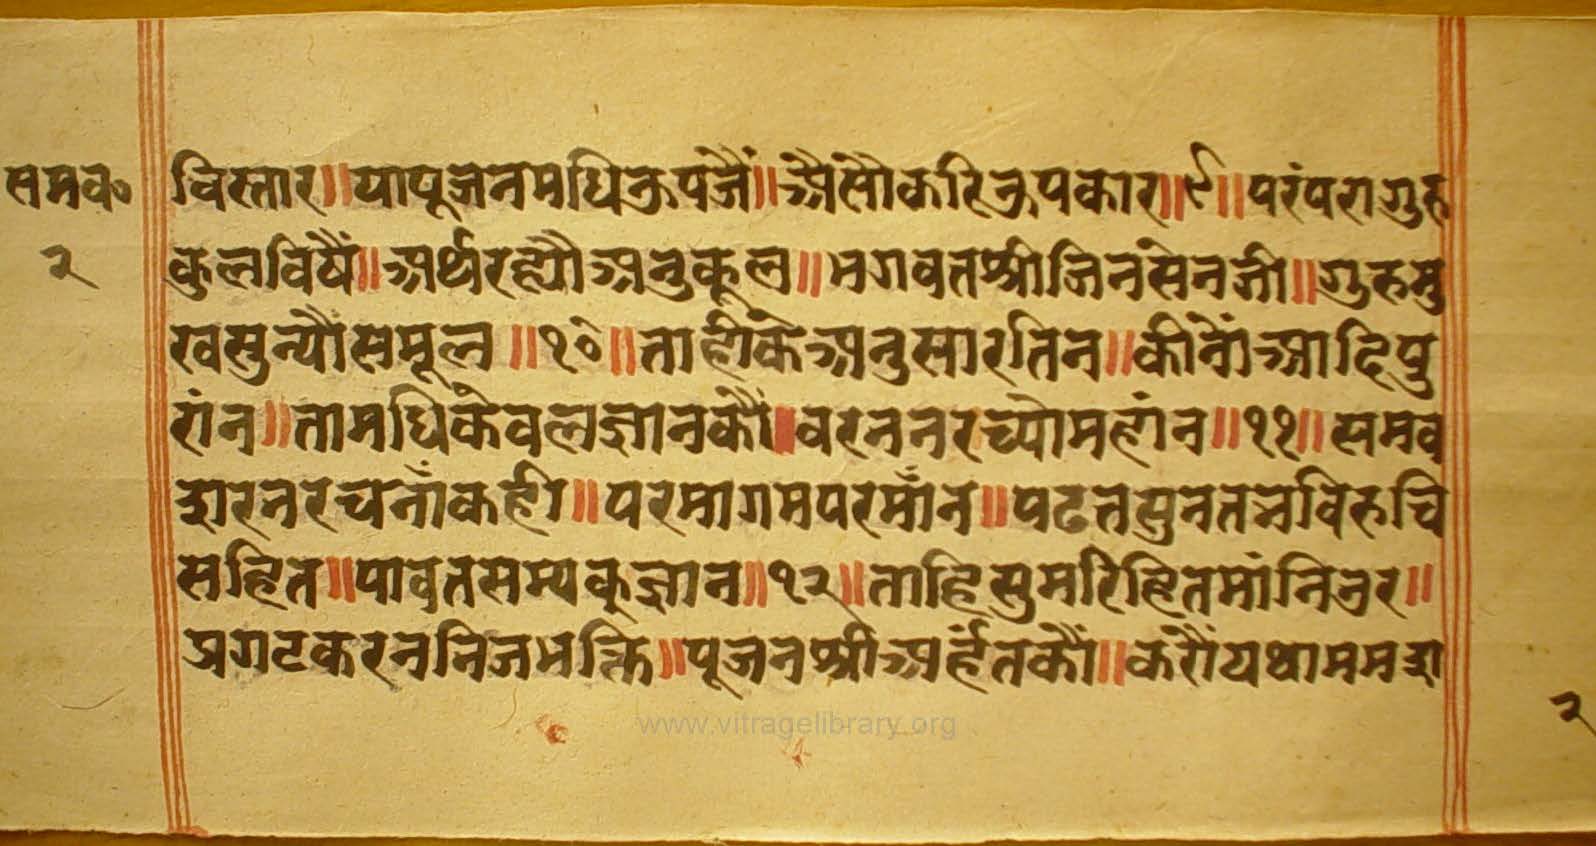 समव०
२
विस्तार॥यापूजनमधिक्रूपजैं॥अैसौकरिक्रूपकार॥९॥परंपरागुरु
कुलविषैं॥अर्थरह्यौअनुकूल॥भगवतश्रीजिनसेनजी॥गुरुमु
खसुन्यौंसमूल॥१०॥ताहीकेअनुसारतिन॥कीनौंआदिपु
रांन॥तामधिकेवलज्ञानकौं॥वरननरच्योमहांन॥११॥समव
सरनरचनाँकही॥परमागमपरमाँन॥पढतसुनतनविरुचि
सहित॥पावतसम्यक्ज्ञान॥१२॥ताहिसुमरिहितमांनिउर॥
प्रगटकरननिजभक्ति॥पूजनश्रीअर्हंतकौं॥करौंयथाममश
२
www.vitragelibrary.org